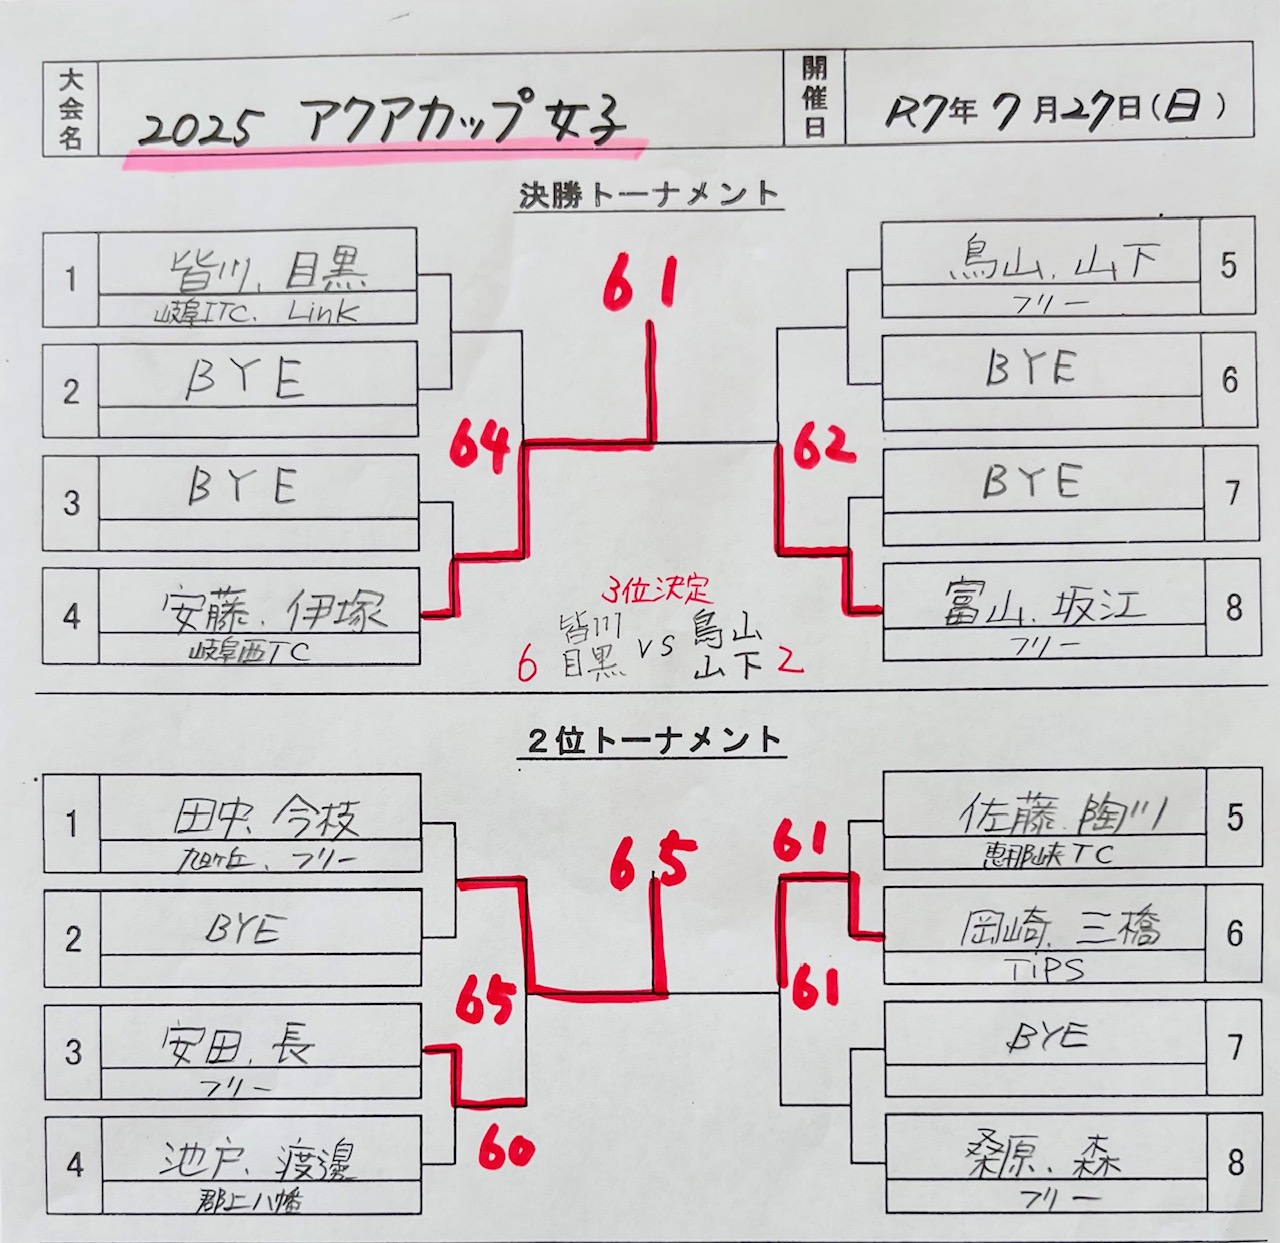 大会名
2025 アクアカップ 女子
開催日
R7年 7月27日(日)
決勝トーナメント
1
皆川、目黒
岐阜ITC. Link
2
BYE
3
BYE
4
安藤、伊塚
岐阜西TC
5
鳥山、山下
フリー
6
BYE
7
BYE
8
富山、坂江
フリー
61
64
62
3位決定
6 皆川 目黒 vs 鳥山 山下 2
2位トーナメント
1
田中、今枝
旭ヶ丘、フリー
2
BYE
3
安田、長
フリー
4
池戸、渡邊
郡上八幡
5
佐藤、陶川
恵那峡TC
6
岡崎、三橋
TiPS
7
BYE
8
桑原、森
フリー
65
61
65
61
60